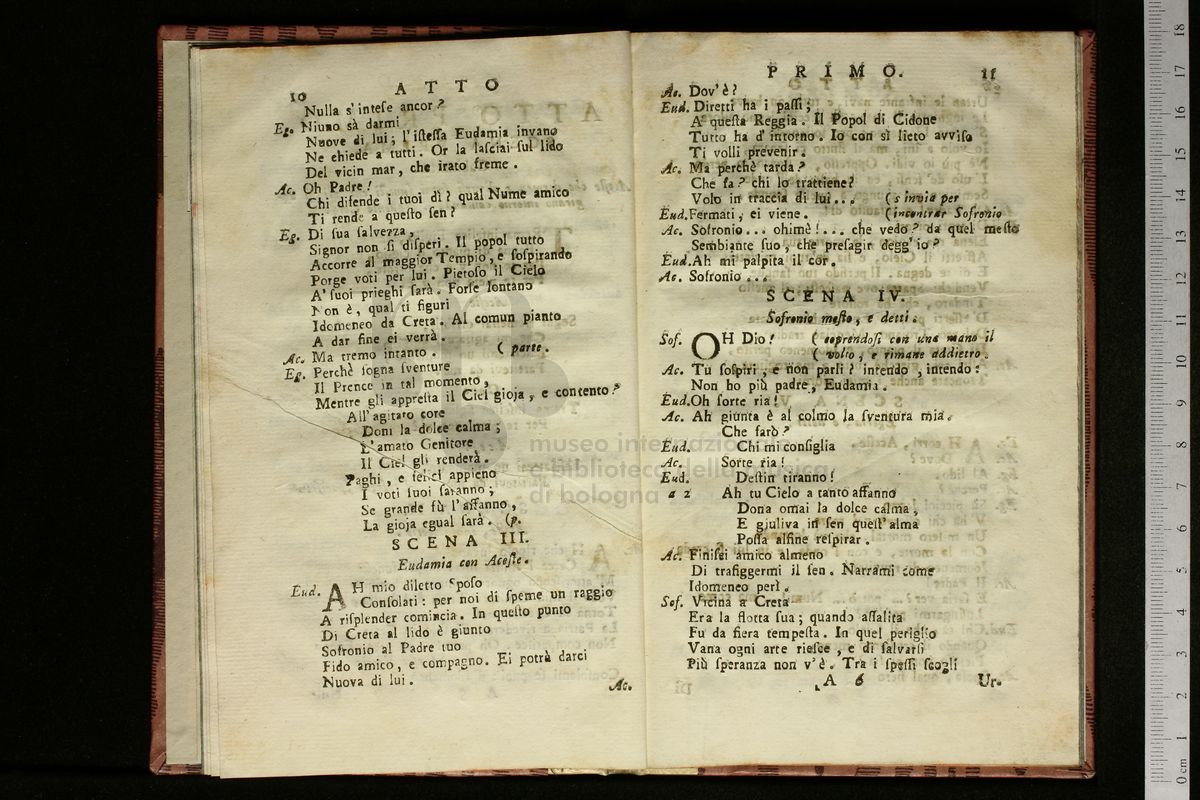 10 ATTO
Nulla s'intese ancor?
Eg. Niuno sà darmi
Nuove di lui; l'istessa Eudamia invano
Ne chiede a tutti. Or la lasciai sul lido
Del vicin mar, che irato freme.
Ac. Oh Padre!
Chi difende i tuoi dì? qual Nume amico
Ti rende a questo sen?
Eg. Di sua salvezza,
Signor non si disperi. Il popol tutto
Accorre al maggior Tempio, e sospirando
Porge voti per lui. Pietoso il Cielo
A' suoi prieghi sarà. Forse lontano
Non è, qual ti figuri
Idomeneo da Creta. Al comun pianto
A dar fine ei verrà.
Ac. Ma tremo intanto. ( parte.
Eg. Perchè sogna sventure
Il Prence in tal momento,
Mentre gli appresta il Ciel gioja, e contento?
All'agitato core
Doni la dolce calma;
L'amato Genitore
Il Ciel gli renderà.
Paghi, e felici appieno
I voti suoi saranno;
Se grande fù l'affanno,
La gioja egual sarà. (p.
SCENA III.
Eudamia con Aceste.
Eud. AH mio diletto Sposo
Consolati: per noi di speme un raggio
A risplender comincia. In questo punto
Di Creta al lido è giunto
Sofronio al Padre tuo
Fido amico, e compagno. Ei potrà darci
Nuova di lui.
Ac.
PRIMO. 11
Ac. Dov'è?
Eud. Diretti ha i passi;
A questa Reggia. Il Popol di Cidone
Tutto ha d'intorno. Io con sì lieto avviso
Ti volli prevenir.
Ac. Ma perchè tarda?
Che fa? chi lo trattiene?
Volo in traccia di lui... ( s'invia per
Eud. Fermati, ei viene. ( incontrar Sofronio
Ac. Sofronio... ohimè!... che vedo? da quel mesto
Sembiante suo, che presagir degg'io?
Eud. Ah mi palpita il cor.
Ac. Sofronio...
SCENA IV.
Sofronio mesto, e detti.
Sof. OH Dio! ( coprendosi con una mano il
( volto, e rimane addietro.
Ac. Tu sospiri, e non parli? intendo, intendo:
Non ho più padre, Eudamia.
Eud. Oh sorte ria!
Ac. Ah giunta è al colmo la sventura mia.
Che farò?
Eud. Chi mi consiglia
Ac. Sorte ria!
Eud. Destin tiranno!
a 2 Ah tu Cielo a tanto affanno
Dona omai la dolce calma,
E giuliva in sen quest'alma
Possa alfine respirar.
Ac. Finisci amico almeno
Di trafiggermi il sen. Narrami come
Idomeneo perì.
Sof. Vicina a Creta
Era la flotta sua; quando assalita
Fu da fiera tempesta. In quel periglio
Vana ogni arte riesce, e di salvarsi
Più speranza non v'è. Tra i spessi scogli
A 6 Ur-
museo internazionale
e biblioteca della musica
di bologna